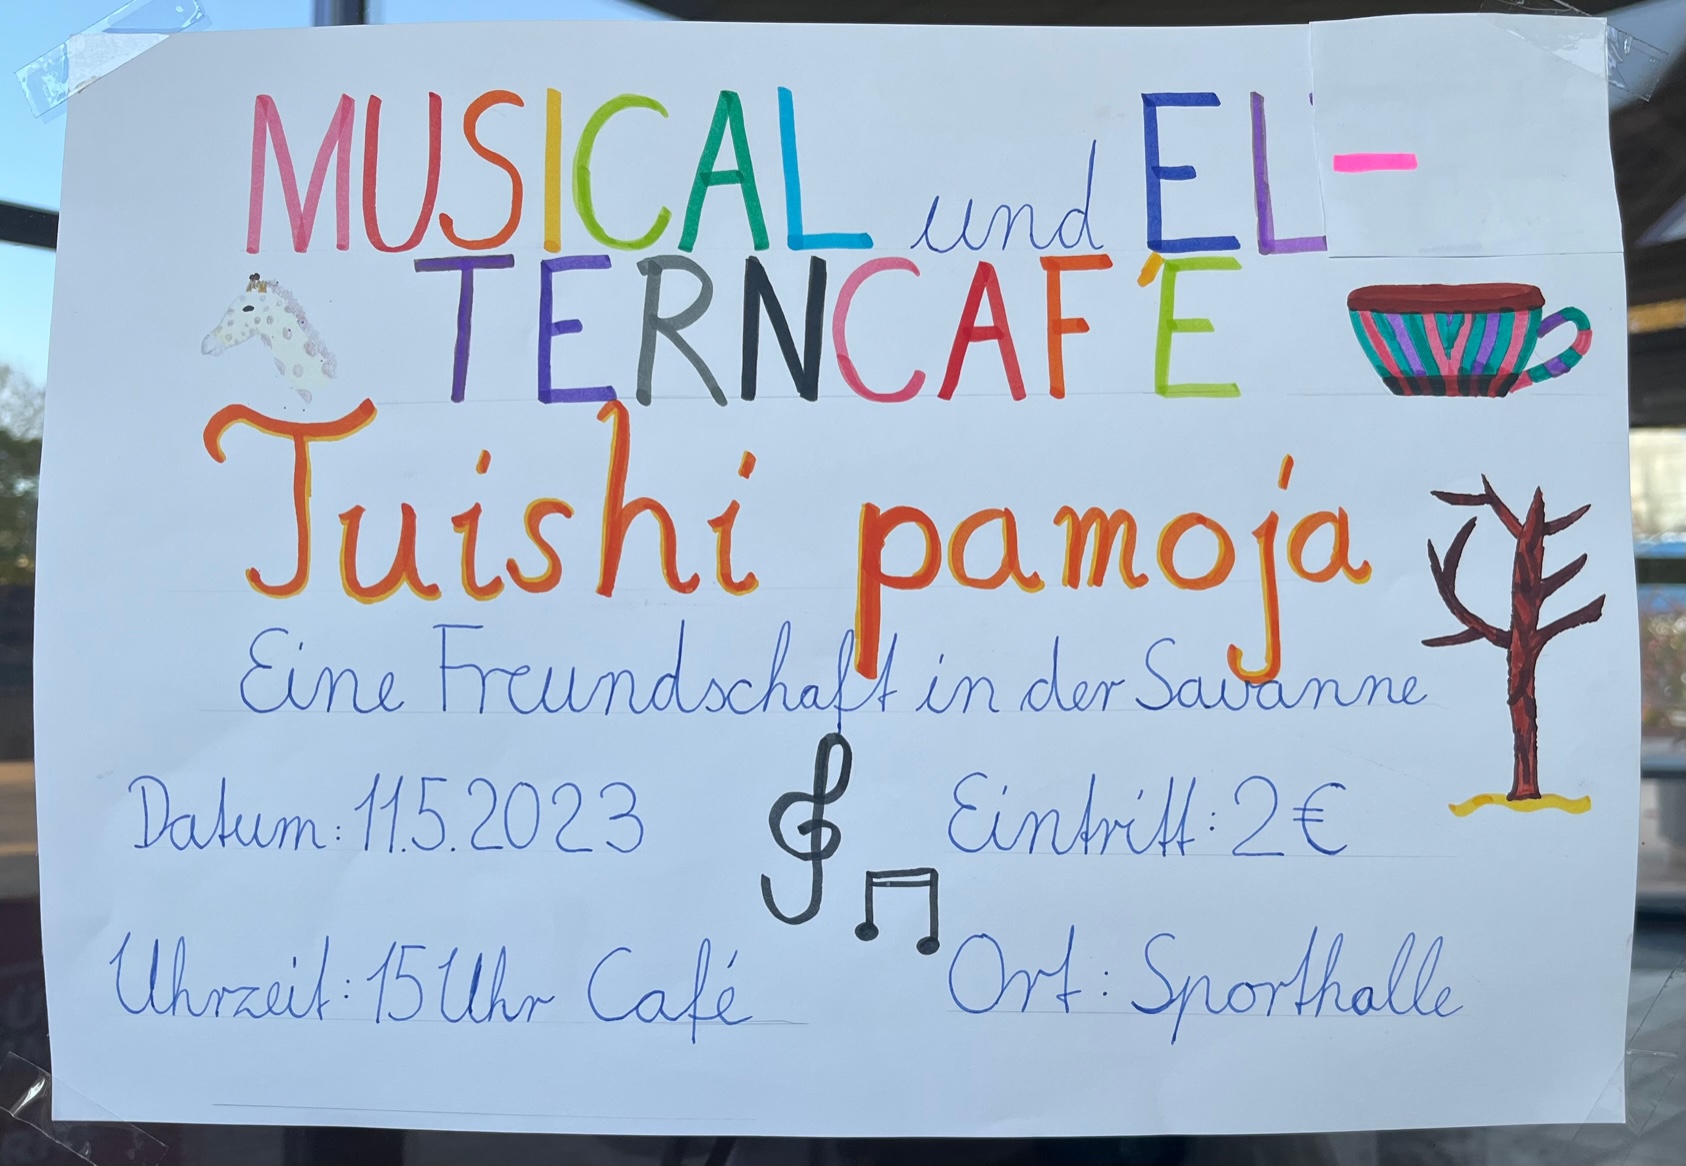 MUSICAL und EL-
TERNCAFÉ
Tuishi pamoja
Eine Freundschaft in der Savanne
Datum: 11.5.2023
Eintritt: 2€
Uhrzeit: 15 Uhr Café
Ort: Sporthalle